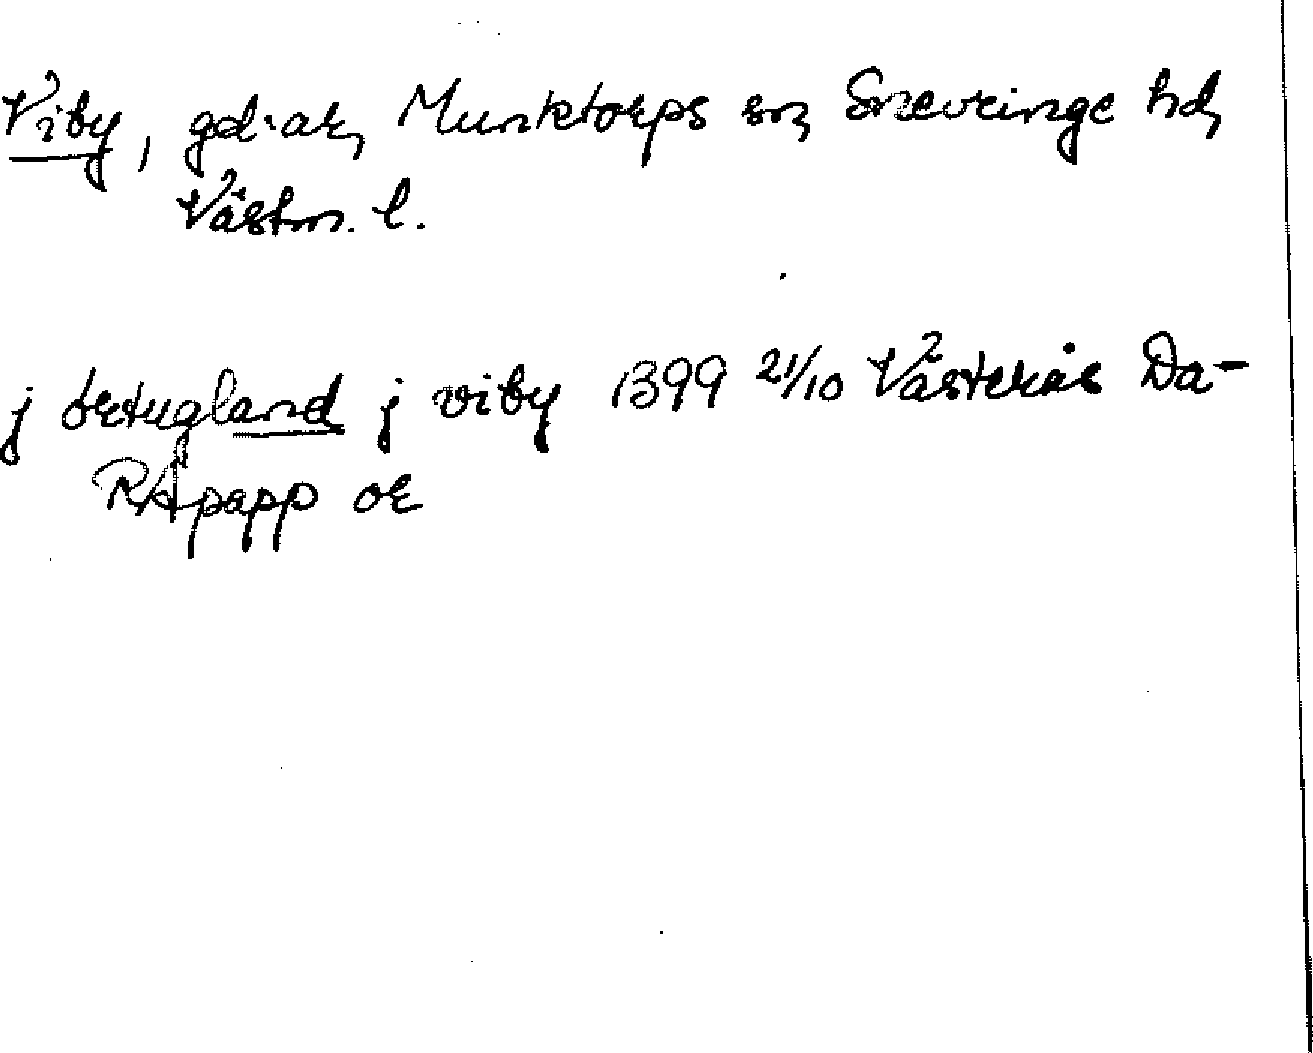 Viby, gd:ar, Munktorps sn, Snevringe hd,
Västm. l.
j ørtugland j viby 1399 21/10 Västerås Da-
RApapp or